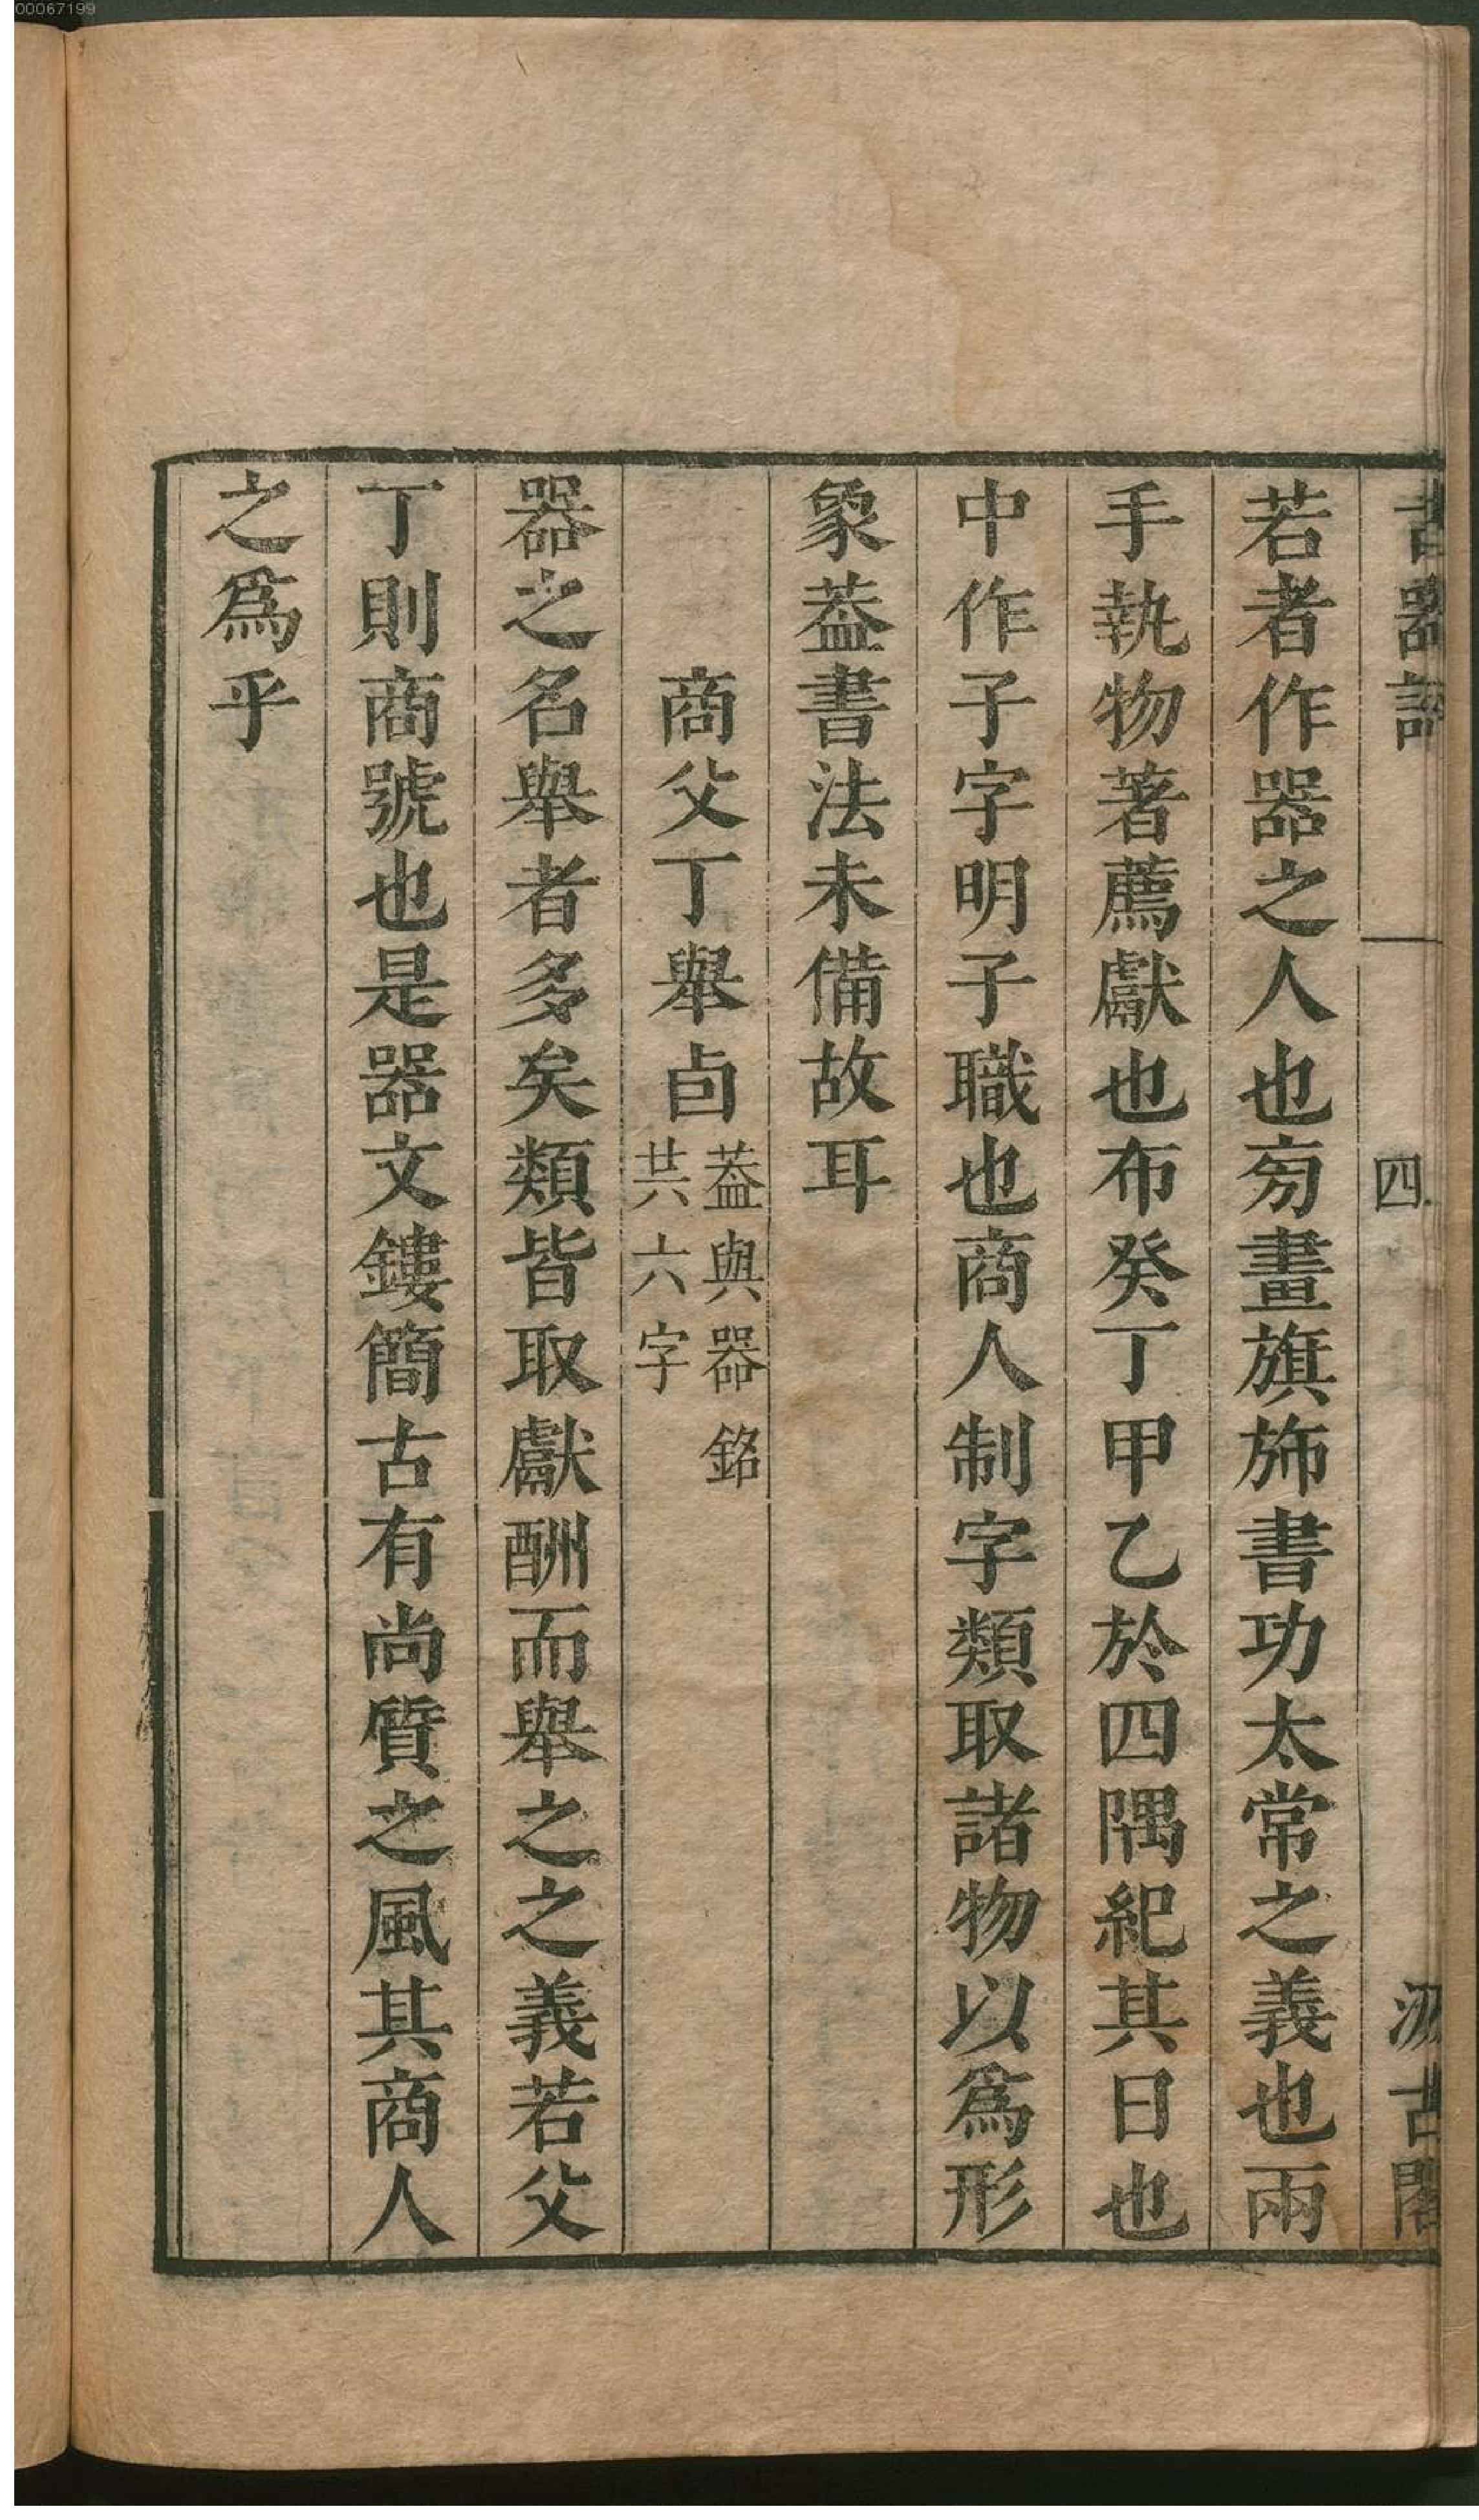 00067199
若者作器之人也㫄畫旗斾書功太常之義也兩
手執物著薦獻也布癸丁甲乙於四隅紀其日也
中作子字明子職也商人制字類取諸物以爲形
象葢書法未備故耳
商父丁舉卣葢與器銘
共六字
器之名舉者多矣類皆取獻酬而舉之之義若父
丁則商號也是器文鏤簡古有尚質之風其商人
之爲乎
古器評 四 汲古閣